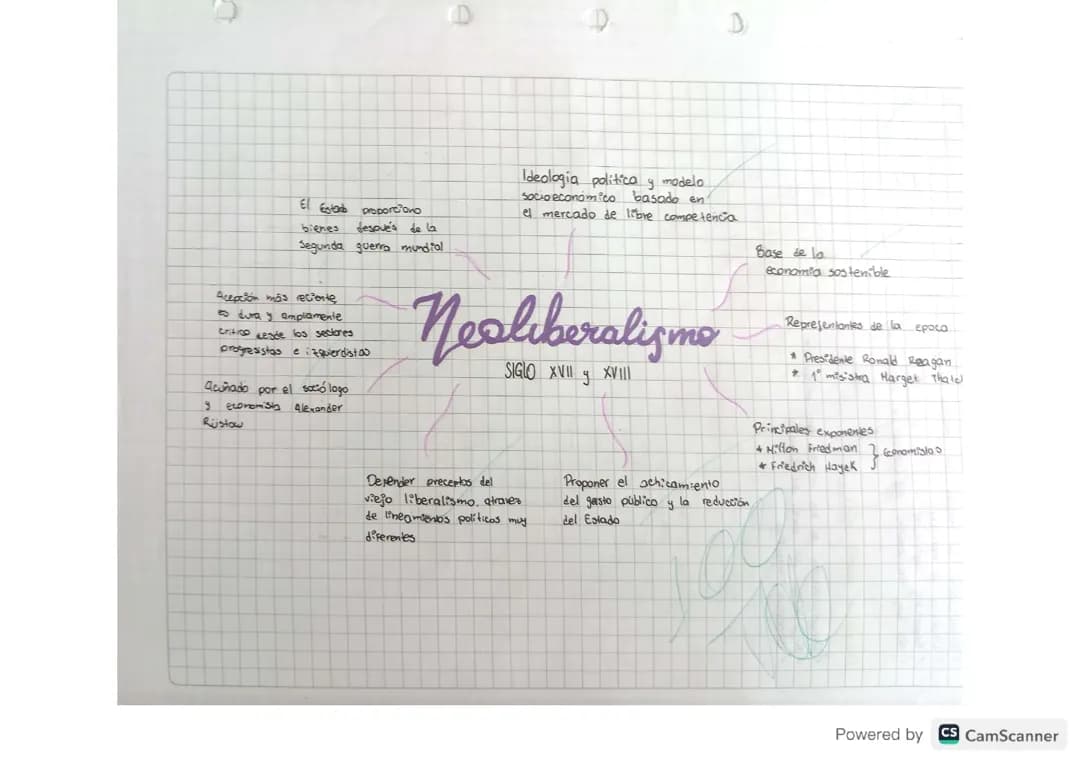 Ideología política y modelo
socioeconómico basado en
el mercado de libre competencia
El Estado proporciono
bienes después de la
Segunda guerra mundial
Base de la
economía sostenible
Acepción más reciente
dura y ampliamente
critica desde los sectores
progresistas e izquierdistas
Neoliberalismo
SIGLO XVII y XVIII
Representantes de la epoca
* Presidente Ronald Reagan
* 1° misistra Marget Thatc
Acuñado por el sociólogo
y economista Alexander
Rüstow
Principales exponentes
* Milton Friedman } Economistas
* Friedrich Hayek
Defender preceptos del
viejo liberalismo, atravez
de lineamientos políticos muy
diferentes
Proponer el achicamiento
del gasto público y la reducción
del Estado
100
100
Powered by CS CamScanner